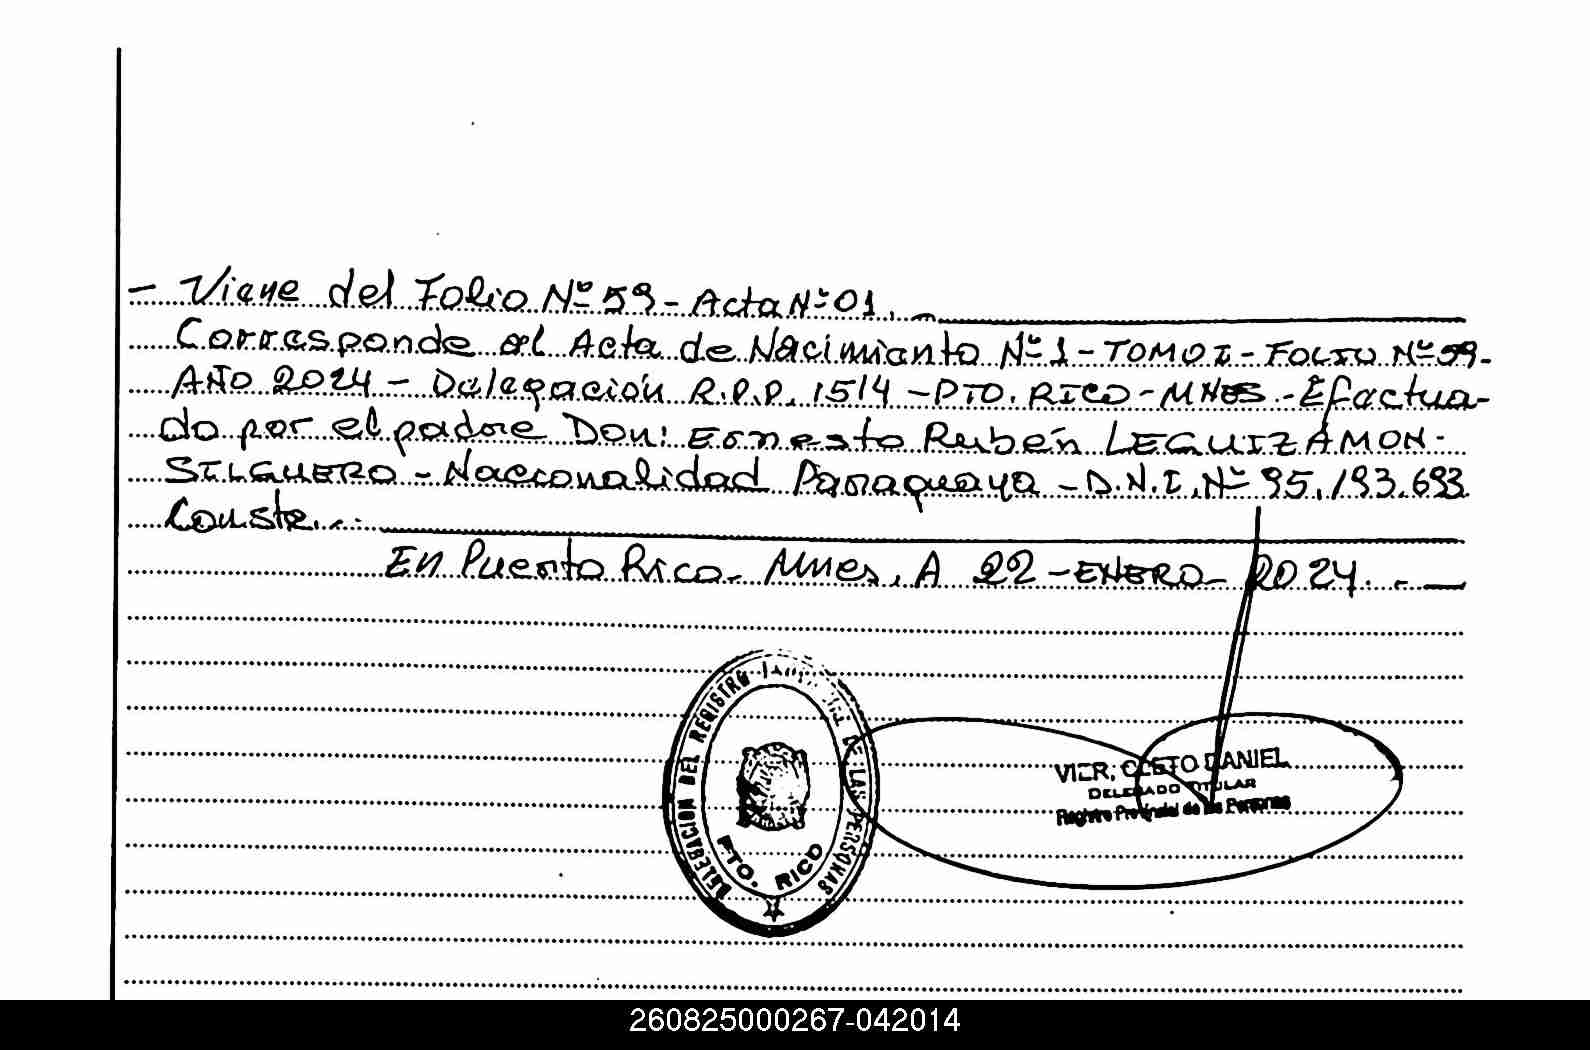 - Viene del Folio Nº 59 - Acta Nº 01. -
Corresponde al Acta de Nacimiento Nº 1 - TOMO I - FOLIO Nº 59 -
AÑO 2024 - Delegación R.P.P. 1514 - PTO. RICO - MNES - Efectua-
do por el padre Don: Ernesto Rubén LEGUIZAMON -
SILGUERO - Nacionalidad Paraguaya - D.N.I. Nº 95.193.693
Conste. -
En Puerto Rico - Mnes, A 22 - ENERO - 2024. -
DELEGACION DEL REGISTRO DE LAS PERSONAS
PTO. RICO
VIER, CLETO DANIEL
DELEGADO TITULAR
Registro Provincial de las Personas
260825000267-042014